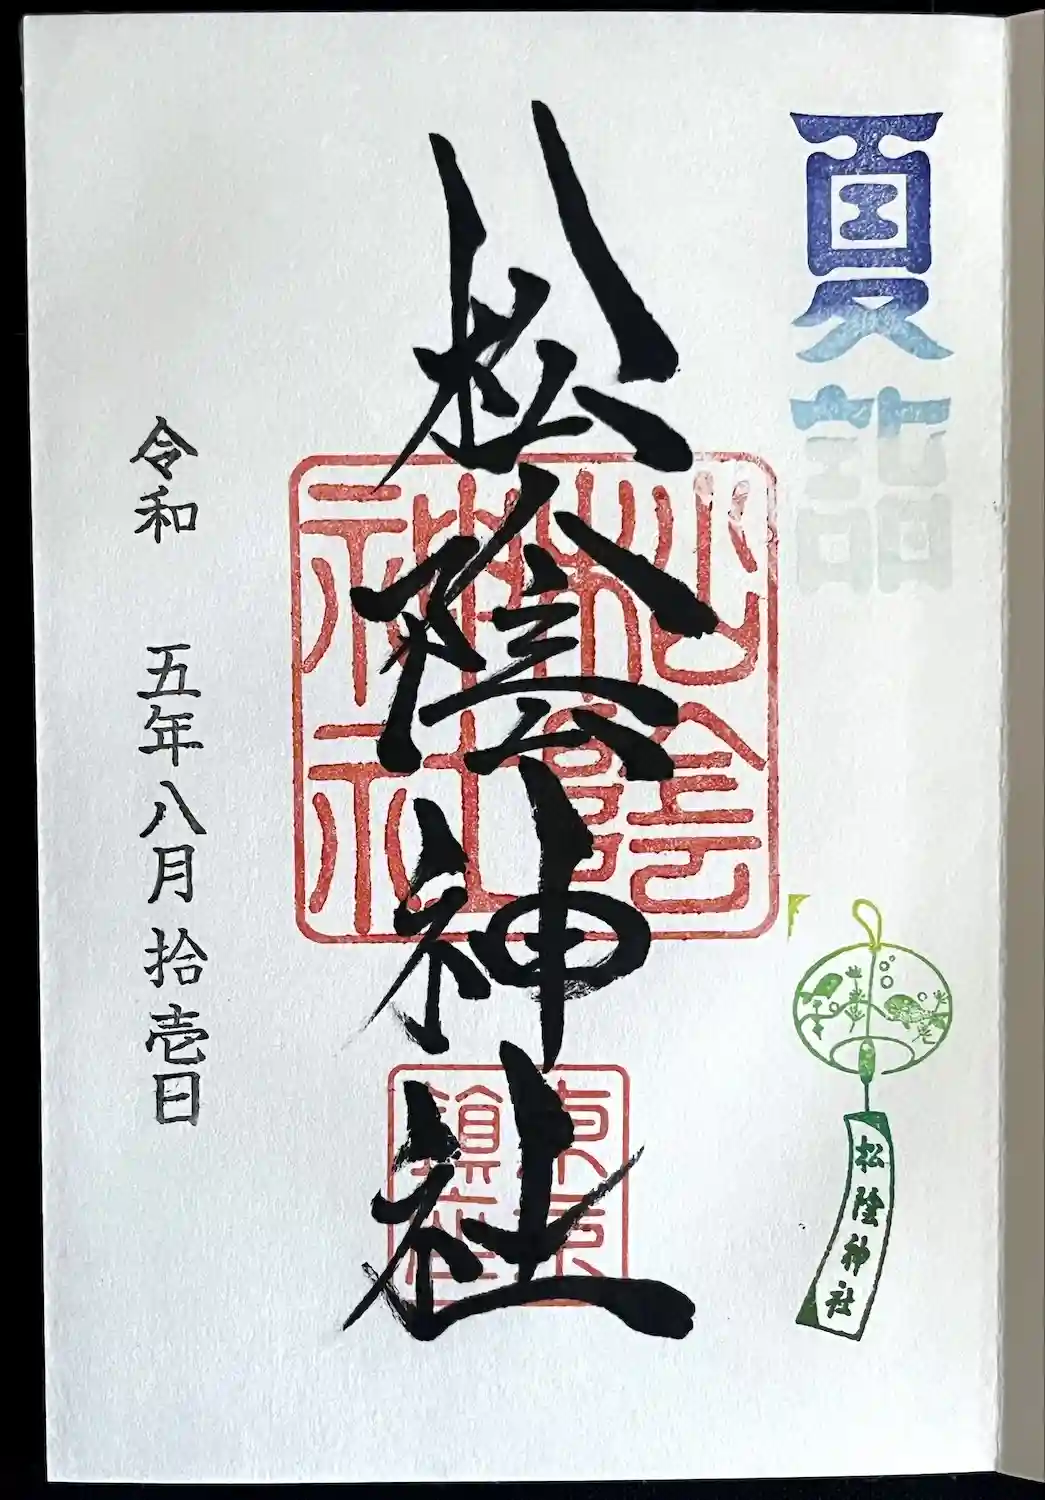 夏詣
松陰神社
松陰神社
松陰神社
東京
鎮座
令和 五年八月拾壱日